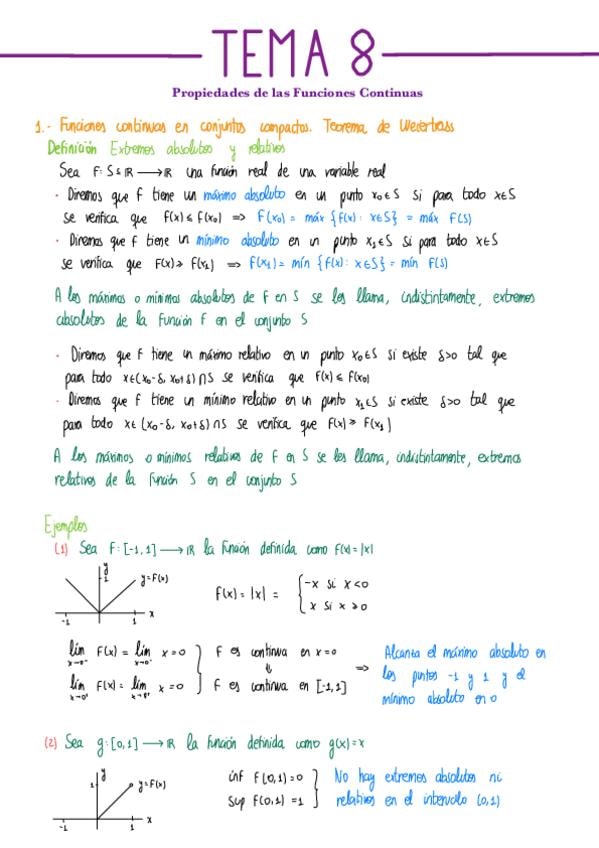 TEMA 8
Propiedades de las Funciones Continuas
1.- Funciones continuas en conjuntos compactos. Teorema de Weiertrass
Definición Extremos absolutos y relativos
Sea F: S ⊆ ℝ → ℝ una función real de una variable real
· Diremos que f tiene un máximo absoluto en un punto x₀∈S si para todo x∈S
se verifica que F(x) ≤ F(x₀) ⇒ F(x₀) = máx {F(x) : x∈S} = máx F(S)
· Diremos que f tiene un mínimo absoluto en un punto x₁∈S si para todo x∈S
se verifica que F(x) ≥ F(x₁) ⇒ F(x₁) = mín {F(x) : x∈S} = mín F(S)
A los máximos o mínimos absolutos de F en S se les llama, indistintamente, extremos
absolutos de la función F en el conjunto S
· Diremos que f tiene un máximo relativo en un punto x₀∈S si existe δ>0 tal que
para todo x∈(x₀-δ, x₀+δ)∩S se verifica que F(x) ≤ F(x₀)
· Diremos que f tiene un mínimo relativo en un punto x₁∈S si existe δ>0 tal que
para todo x∈ (x₀-δ, x₀+δ)∩S se verifica que F(x) ≥ F(x₁)
A los máximos o mínimos relativos de F en S se les llama, indistintamente, extremos
relativos de la función S en el conjunto S
Ejemplos
(1) Sea F: [-1,1] → ℝ la función definida como F(x) = |x|
y
1
y=F(x)
-1 1 x
F(x) = |x| = { -x si x<0
x si x≥0
lím F(x) = lím x = 0
x→0⁻ x→0⁻
lím F(x) = lím x = 0
x→0⁺ x→0⁺
F es continua en x=0
⇓
F es continua en [-1,1]
⇒ Alcanza el máximo absoluto en
los puntos -1 y 1 y el
mínimo absoluto en 0
(2) Sea g: [0,1] → ℝ la función definida como g(x)=x
y
1
y=F(x)
-1 1 x
inf F(0,1) = 0
sup F(0,1) = 1
No hay extremos absolutos ni
relativos en el intervalo (0,1)